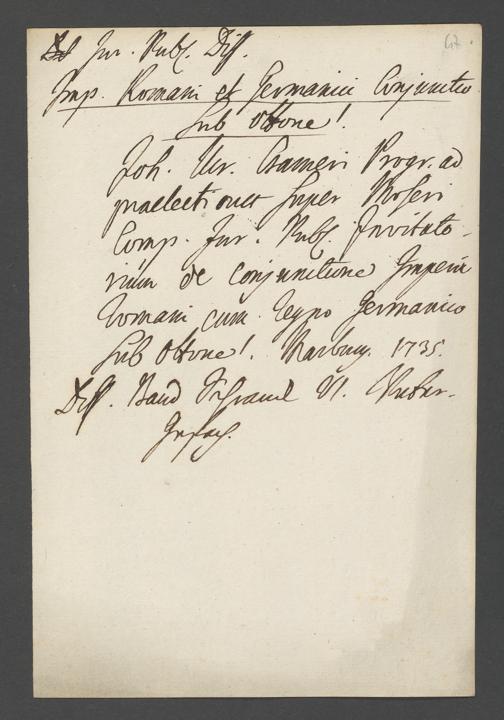 67.
Jur. Publ. Diss.
Imp. Romani et Germanici Conjunctio
sub Ottone I.
Joh. Ulr. Crameri Progr. ad
praelectiones super Moseri
Comp. Jur. Publ. Invitato-
rium de conjunctione Imperii
Romani cum regno Germanico
sub Ottone I. Marburg. 1735.
Diss. Band VI.